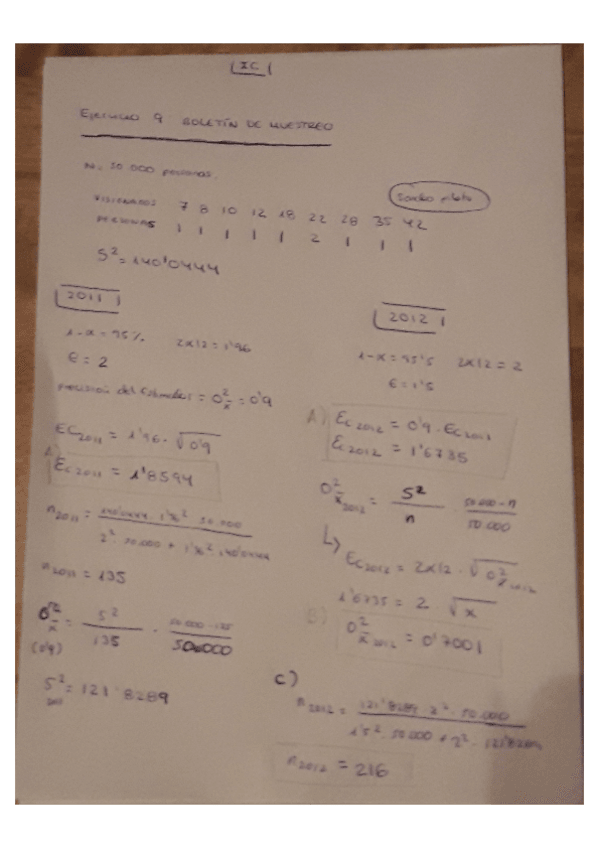 IC
Ejercicio 9 BOLETÍN DE MUESTREO
N = 50.000 personas.
Sondeo piloto
VISIONADOS 7 8 10 12 18 22 28 35 42
PERSONAS 1 1 1 1 1 2 1 1 1
S² = 140'0444
2011
1-α = 95% Zα/2 = 1'96
e = 2
precisión del Estimador = σ²x̄ = 0'9
EC2011 = 1'96 · √0'9
A) EC2011 = 1'8594
n2011 = 140'0444 · 1'96² · 50.000 / 2² · 50.000 + 1'96² · 140'0444
n2011 = 135
σ²x̄ = S² / 135 · 50.000 - 135 / 50.000
(0'9)
S²2011 = 121'8289
2012
1-α = 95'5 Zα/2 = 2
e = 1'5
A) EC2012 = 0'9 · EC2011
EC2012 = 1'6735
σ²x̄2012 = S² / n · 50.000 - n / 50.000
↳ EC2012 = Zα/2 · √σ²x̄2012
1'6735 = 2 √x
B) σ²x̄2012 = 0'7001
C)
n2012 = 121'8289 · 2² · 50.000 / 1'5² · 50.000 + 2² · 121'8289
n2012 = 216